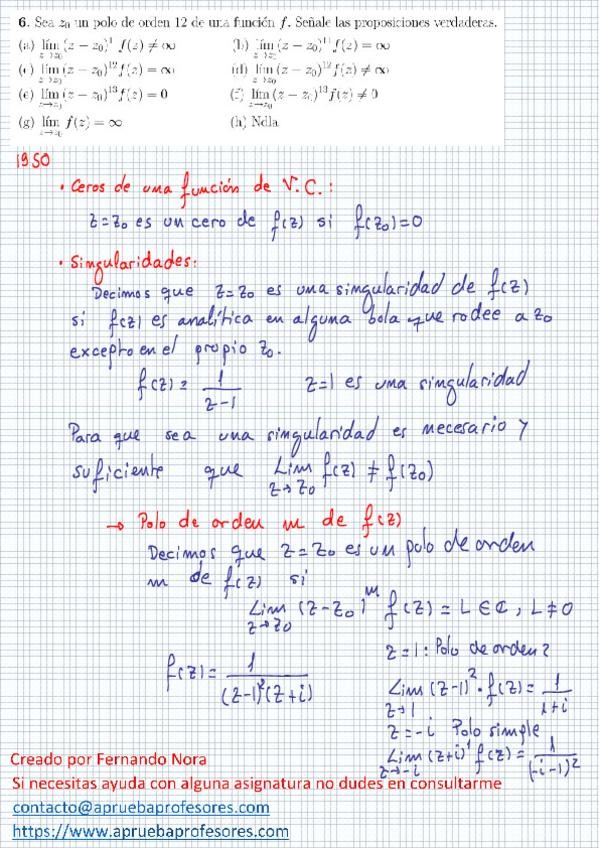 6. Sea z₀ un polo de orden 12 de una función f. Señale las proposiciones verdaderas.
(a) lím z→z₀ (z − z₀)¹¹ f(z) ≠ ∞ (b) lím z→z₀ (z − z₀)¹¹ f(z) = ∞
(c) lím z→z₀ (z − z₀)¹² f(z) = ∞ (d) lím z→z₀ (z − z₀)¹² f(z) ≠ ∞
(e) lím z→z₀ (z − z₀)¹³ f(z) = 0 (f) lím z→z₀ (z − z₀)¹³ f(z) ≠ 0
(g) lím z→z₀ f(z) = ∞ (h) Ndla
1950
• Ceros de una función de V.C.:
z=z₀ es un cero de f(z) si f(z₀)=0
• Singularidades:
Decimos que z=z₀ es una singularidad de f(z)
si f(z) es analítica en alguna bola que rodee a z₀
excepto en el propio z₀.
f(z) = 1/(z-1) z=1 es una singularidad
Para que sea una singularidad es necesario y
suficiente que Lim z→z₀ f(z) ≠ f(z₀)
→ Polo de orden m de f(z)
Decimos que z=z₀ es un polo de orden
m de f(z) si
Lim z→z₀ (z-z₀)^m f(z) = L ∈ ℂ, L ≠ 0
f(z) = 1/((z-1)²(z+i))
z=1: Polo de orden 2
Lim z→1 (z-1)²·f(z) = 1/(1+i)
z=-i Polo simple
Lim z→-i (z+i)¹ f(z) = 1/(-i-1)²
Creado por Fernando Nora
Si necesitas ayuda con alguna asignatura no dudes en consultarme
contacto@apruebaprofesores.com
https://www.apruebaprofesores.com